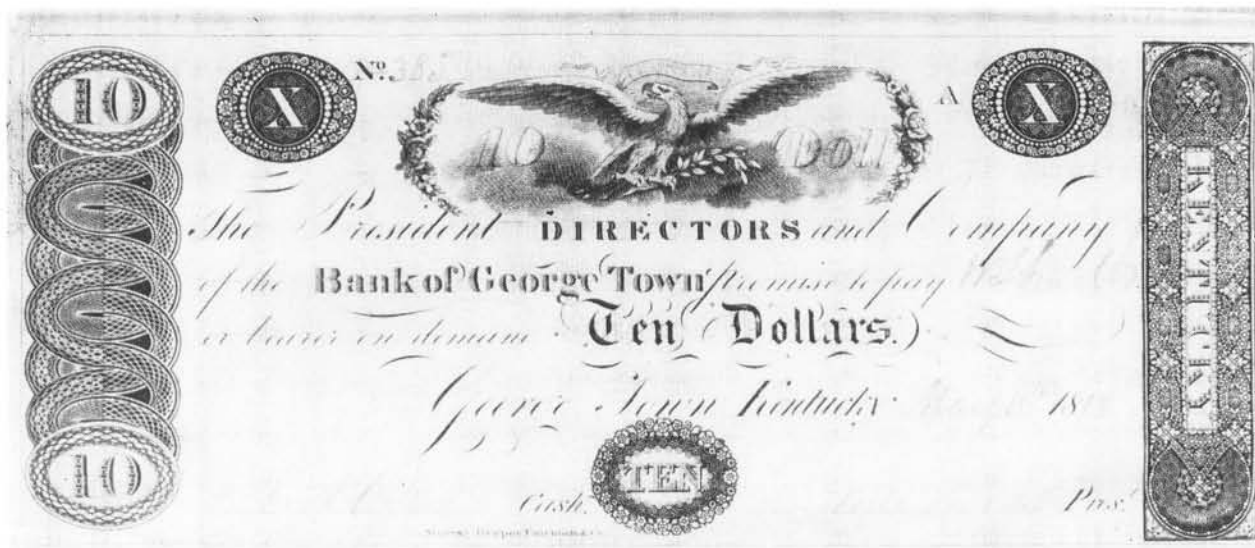 10 X Nº. A X
10 Doll
The President DIRECTORS and Company
of the Bank of George Town promise to pay
or bearer on demand Ten Dollars.
George Town Kentucky 18
TEN
10 Cash. Prest
KENTUCKY